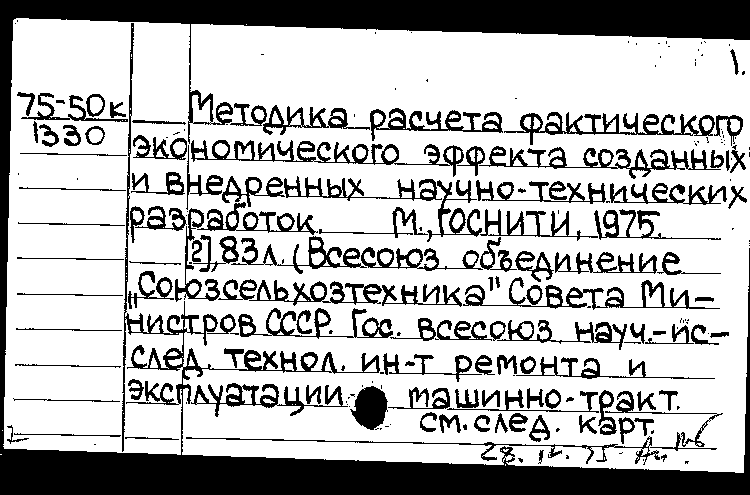 1.
75-50к
1330
Методика расчета фактического
экономического эффекта созданных
и внедренных научно-технических
разработок. М., ГОСНИТИ, 1975.
[2], 83 л. (Всесоюз. объединение
„Союзсельхозтехника" Совета Ми-
нистров СССР. Гос. всесоюз. науч.-ис-
след. технол. ин-т ремонта и
эксплуатации машинно-тракт.
см. след. карт.